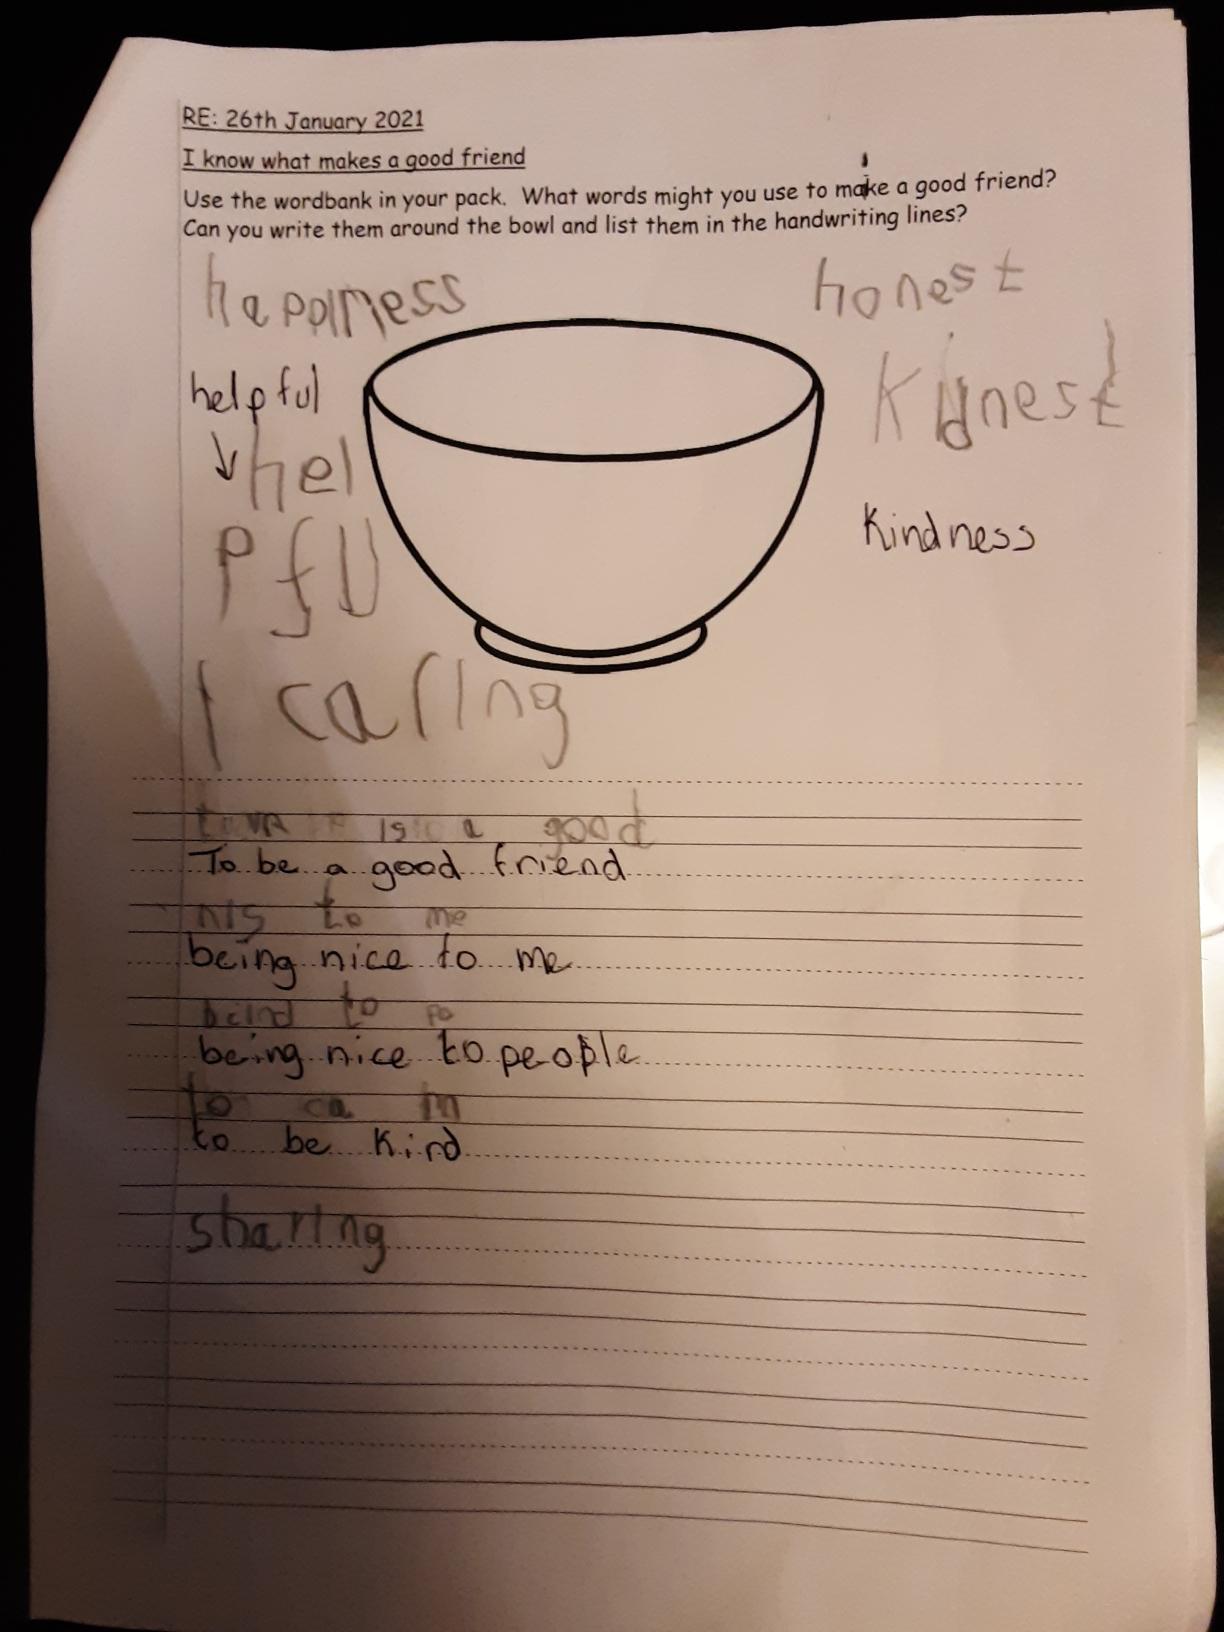 RE: 26th January 2021
I know what makes a good friend
Use the wordbank in your pack. What words might you use to make a good friend?
Can you write them around the bowl and list them in the handwriting lines?
happiness
honest
helpful
Kidnest
hel
pfu
l
Kindness
caring
is a good
To be a good friend
nis to me
being nice to me
to
being nice to people
to ca
to be kind
sharing